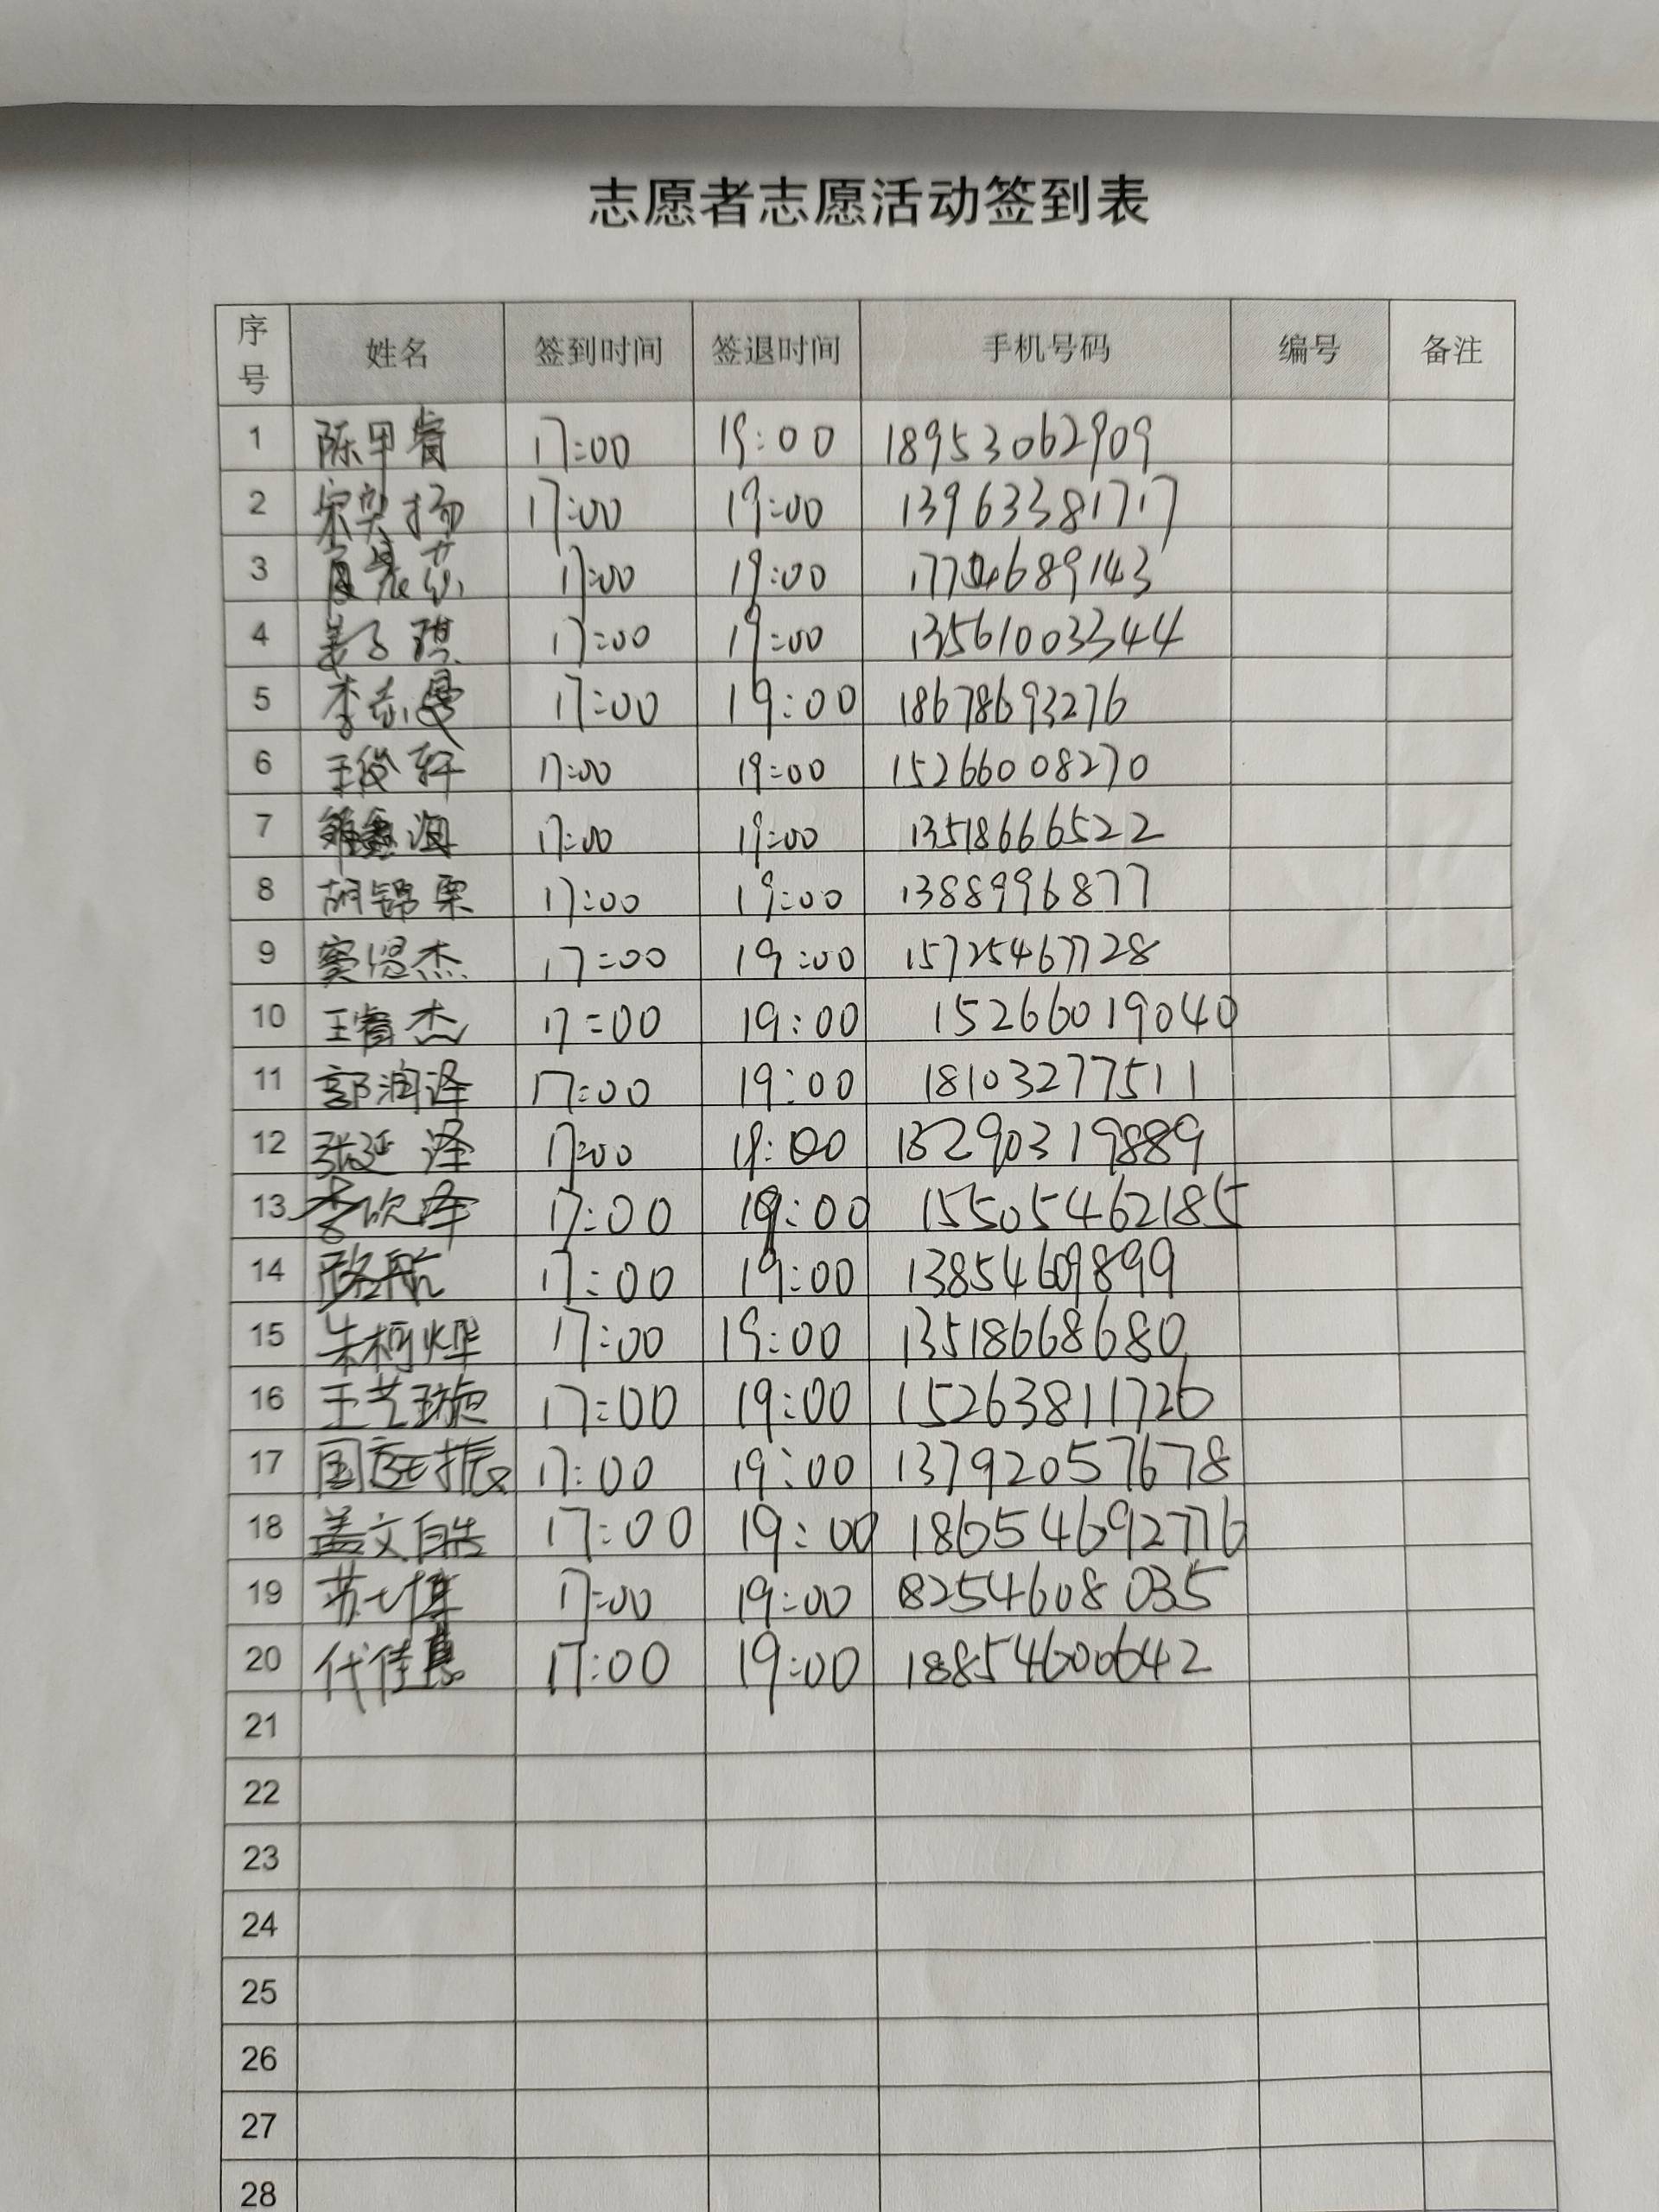 志愿者志愿活动签到表
序号 姓名 签到时间 签退时间 手机号码 编号 备注
1 陈甲睿 17:00 19:00 18953062909
2 宋奕扬 17:00 19:00 13963381717
3 17:00 19:00
4 姜子琪 17:00 19:00 13561003344
5 李志曼 17:00 19:00 18678693276
6 王俊轩 17:00 19:00 15266008270
7 17:00 19:00 13518666522
8 胡锦栗 17:00 19:00 1388996877
9 窦偲杰 17:00 19:00 15725467728
10 王睿杰 17:00 19:00 15266019040
11 郭润泽 17:00 19:00 18103277511
12 张延泽 17:00 19:00 13290319889
13 李欣泽 17:00 19:00 15505462185
14 17:00 19:00 13854609899
15 朱柯烨 17:00 19:00 13518668680
16 王艺璇 17:00 19:00 15263811726
17 国庭振 17:00 19:00 13792057678
18 盖文皓 17:00 19:00 18654692776
19 17:00 19:00 18254608035
20 代佳惠 17:00 19:00 18854600642
21
22
23
24
25
26
27
28